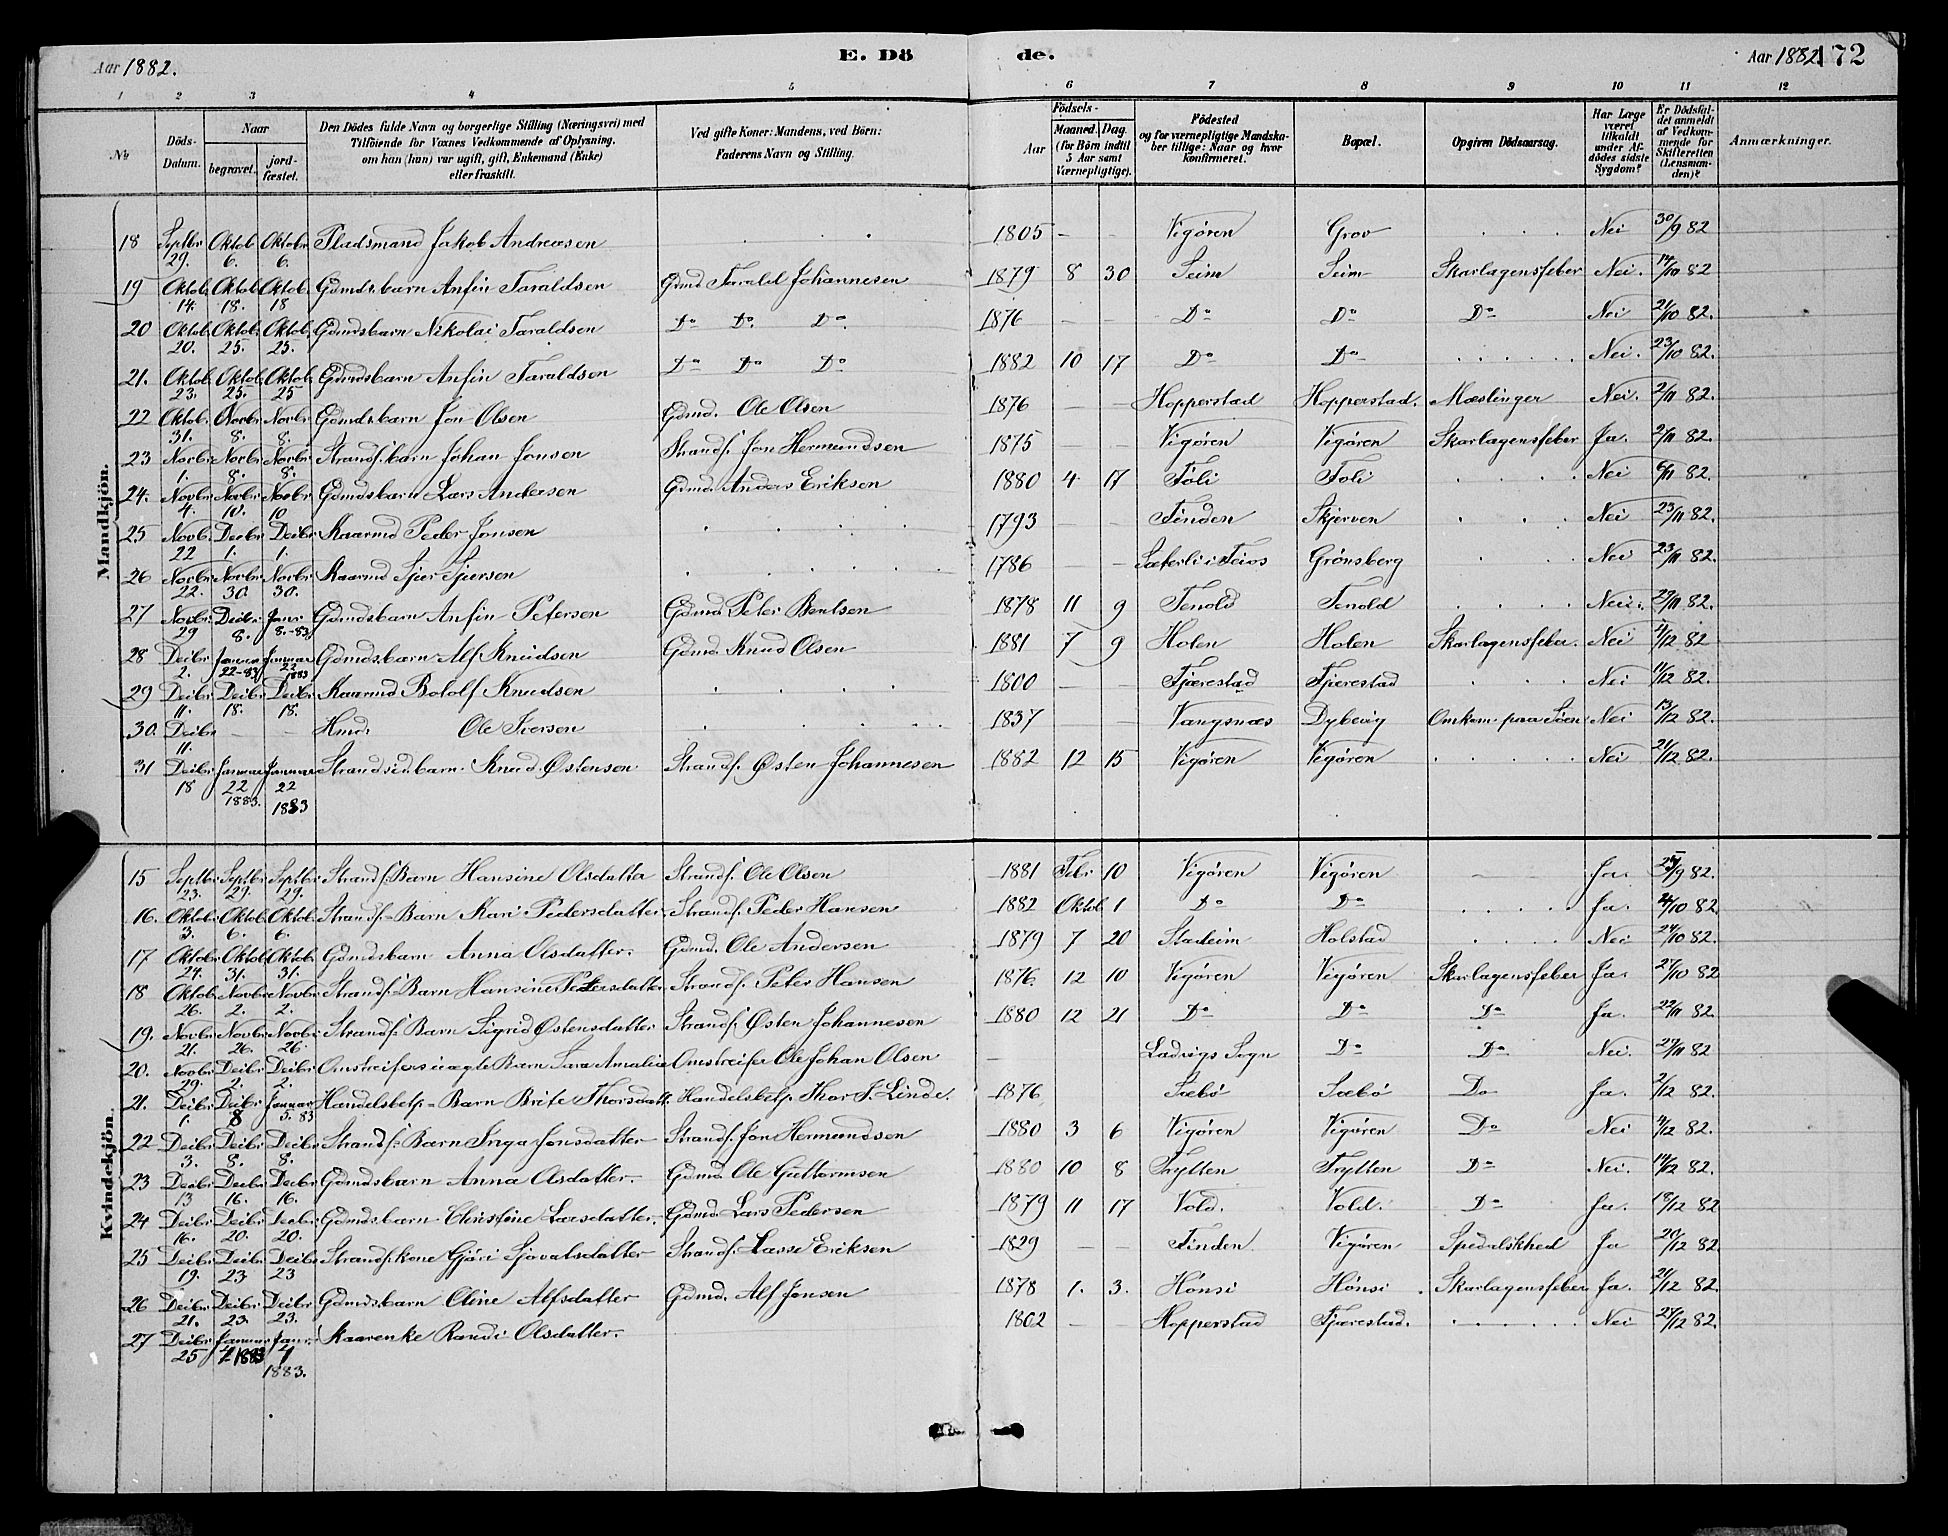 Aar 1882. E. Dö de. Aar 1882. 172
1 2 3 4 5 6 7 8 9 10 11 12
No Döds-Datum. Naar begravet. jordfæstet. Den Dödes fulde Navn og borgerlige Stilling (Næringsvei) med Tilföiende for Voxnes Vedkommende af Oplysning, om han (hun) var ugift, gift, Enkemand (Enke) eller fraskilt. Ved gifte Koner: Mandens, ved Börn: Faderens Navn og Stilling. Aar Födsels- Maaned. Dag. (for Börn indtil 5 Aar samt Værnepligtige). Födested og for værnepligtige Mandskaber tillige: Naar og hvor konfirmeret. Bopæl. Opgiven Dödsaarsag. Har Læge været tilkaldt under Afdödes sidste Sygdom? Er Dödsfaldet anmeldt af Vedkommende for Skifteretten (Lensmanden)? Anmærkninger.
Mandkjön.
18 Septbr 29. Oktob 6. Oktobr 6. Pladsmand Jakob Andreasen 1805 – – Vigøren Grov Nei 30/9 82
19 Oktob. 14. Oktob 18. Oktob. 18 Gdmdsbarn Anfin Taraldsen Gdmd Tarald Johannesen 1879 8 30 Seim Seim Skarlagensfeber Nei. 14/10 82
20 Oktob. 20. Oktob. 25. Oktob. 25. Gdmdsbarn Nikolai Taraldsen Do Do. Do. 1876 – – Do Do Do Nei 21/10 82.
21. Oktob. 23. Oktob. 25. Oktob. 25 Gdmdsbarn Anfin Taraldsen Do Do Do 1882 10 17 Do Do Nei. 23/10 82.
22 Oktob. 31. Novbr. 8. Novbr. 8. Gdmdsbarn Jon Olsen Gdmd. Ole Olsen 1876 – – Hopperstad Hopperstad. Mæslinger Nei. 2/11 82.
23 Novbr. 1. Novbr. 8. Novbr. 8. Strands. barn Johan Jonsen Strands. Jon Hermundsen 1875 – – Vigøren Vigøren Skarlagensfeber Ja. 2/11 82.
24. Novbr. 4. Novbr 10. Novbr 10 Gdmdsbarn Lars Andersen Gdmd. Anders Eriksen 1880 4 17 Föli Föli Nei 6/11 82.
25 Novb. 22 Decbr 1. Decbr 1. Kaarmd Peder Jonsen 1793 – – Finden Skjerven Nei 23/11 82.
26 Novbr 22. Novbr. 30. Novbr. 30. Kaarmd Sjur Sjursen 1786 – – Sæterli i Feios Grønsberg Nei 23/11 82.
27 Novbr. 29 Decbr. 8. Janr 8.-83 Gdmdsbarn Anfin Petersen Gdmd. Peter Bentsen 1878 11 9 Tenold Tenold Nei. 29/11 82.
28 Decbr. 2. Januar 22-83 Januar 22 1883 Gdmdsbarn Alf Knudsen Gdmd. Knud Olsen 1881 7 9 Holen Holen Skarlagensfeber. Nei 4/12 82
29 Decbr. 11. Decbr. 18. Decbr. 18. Kaarmd Botolf Knudsen 1800 – – Fjærestad Fjærestad Nei 11/12 82.
30. Decbr 11. – – Hmd. Ole Iversen 1837 – – Vangsnæs Dybevig Omkom. paa Søen Nei 13/12 82.
31 Decbr. 18 Januar 22 1883. Januar 22 1883 Strandsid.barn Knud Østensen Strands. Østen Johannesen 1882 12 15 Vigøren Vigøren Nei 21/12 82.
Kvindekjön.
15 Septbr. 23. Septbr. 29. Septbr. 29. Strands. Barn Hansine Olsdatter Strands. Ole Olsen 1881 Febr 10 Vigøren Vigøren – – Ja. 25/9 82.
16. Oktob. 3. Oktob. 6. Oktob. 6. Strands. Barn Kari Pedersdatter Strands. Peder Hansen 1882 Oktob. 1 Do Do Ja. 4/10 82
17 Oktob. 24. Oktob. 31. Oktob. 31. Gdmdsbarn Anna Olsdatter. Gdmd. Ole Andersen 1879 7 20 Stadeim Holstad Nei 24/10 82.
18 Oktob. 26. Novbr. 2. Novbr. 2. Strands. Barn Hansine Petersdatter Strands. Peter Hansen 1876. 12 10 Vigøren Vigøren Skarlagensfeber Ja. 27/10 82
19. Novbr. 21. Novbr. 26. Novbr. 26. Strands. Barn Sigrid Østensdatter Strands. Østen Johannesen 1880 12 21 Do Do Do Ja. 22/11 82.
20. Novbr. 29. Decbr. 2. Decbr. 2. Omstreifers uægte Barn Sara Amalia Omstreifer Ole Johan Olsen – Ladvigs Sogn Do Do. Nei. 29/11 82
21. Decbr. 1. Decbr 8 Januar 5. 83 Handelsbetj. Barn Brite Thorsdatt. Handelsbetj. Thor J. Linde. 1876. Sæbø Sæbø Do Ja. 2/12 82.
22 Decbr. 3. Decbr. 8. Decbr. 8. Strands. Barn Inga Jonsdatter Strands. Jon Hermundsen 1880 3 6 Vigøren Vigøren Do Nei 4/12 82.
23 Decbr. 13 Decbr. 16. Decbr. 16. Gdmdsbarn Anna Olsdatter. Gdmd Ole Guttormsen 1880 10 8 Trytten Trytten Do Nei. 14/12 82.
24 Decbr. 16. Decbr. 20. Decbr. 20. Gdmdsbarn Christine Larsdatter. Gdmd. Lars Pedersen 1879 11 17 Vold. Vold. Do Ja. 18/12 82
25 Decbr. 19. Decbr. 23 Decbr. 23 Strands.kone Gjøri Sjovatsdatter Strands. Lasse Eriksen 1829 – – Finden. Vigøren Spedalskhed Ja 20/12 82.
26 Decbr. 21. Decbr. 23. Decbr. 23. Gdmdsbarn Oline Alfsdatter Gdmd. Alf Jonsen 1878 1. 3. Hønsi Hønsi Skarlagensfeber Ja. 21/12 82.
27 Decbr 25 Januar 4 1883 Janr. 4 1883. Kaarenke Randi Olsdatter. 1802 – – Hopperstad Fjærestad. Nei 27/12 82.